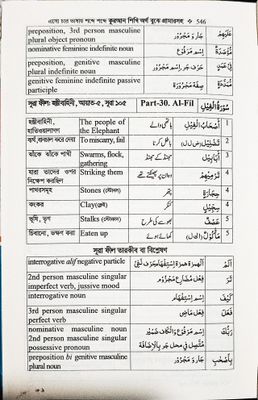 এসো চার ভাষায় শব্দে শব্দে কুরআন শিখি অর্থ বুঝে গ্রামারসহ ❖ 546
preposition, 3rd person masculine plural object pronoun جار و مجرور عَلَيْهِمْ
nominative feminine indefinite noun اسم مرفوع مُؤْصَدَةٌ
preposition, genitive masculine plural indefinite noun
genitive feminine indefinite passive participle صفة مجرورة مُمَدَّدَةٍ
সূরা ফীল হস্তীবাহিনী, আয়াত-৫, সূরা ১০৫ Part-30. Al-Fil سُوْرَةُ الْفِيْلِ
হস্তীবাহিনী, হাতিওয়ালাগণ The people of the Elephant ہاتھی والے أَصْحَابُ الْفِيْلِ 1
To miscarry, fail تَضْلِيْلٌ 2
ঝাঁকে ঝাঁকে পাখী Swarms, flock, gathering جھنڈ کے جھنڈ أَبَابِيْلُ 3
যারা তাদের ওপর নিক্ষেপ করছিল Striking them تَرْمِيْهِمْ 4
পাথরসমূহ Stones پتھر حِجَارَةٌ 4
কংকর Clay کنکر سِجِّيْلٌ 4
ভূষি, তৃণ Stalks بھوسے کی طرح عَصْفٌ 5
চিবানো, ভক্ষণ করা Eaten up کھائے ہوئے مَأْكُوْلٌ 5
সূরা ফীল তারকীব বা বিশ্লেষণ
interrogative alif negative particle أَلَمْ
2nd person masculine singular imperfect verb, jussive mood فعل مضارع مجزوم تَرَ
interrogative noun اسم استفهام كَيْفَ
3rd person masculine singular perfect verb فعل ماض فَعَلَ
nominative masculine noun 2nd person masculine singular possessive pronoun اسم مرفوع والكاف ضمير متصل في محل جر بالإضافة رَبُّكَ
preposition bi genitive masculine plural noun جار و مجرور بِأَصْحٰبِ